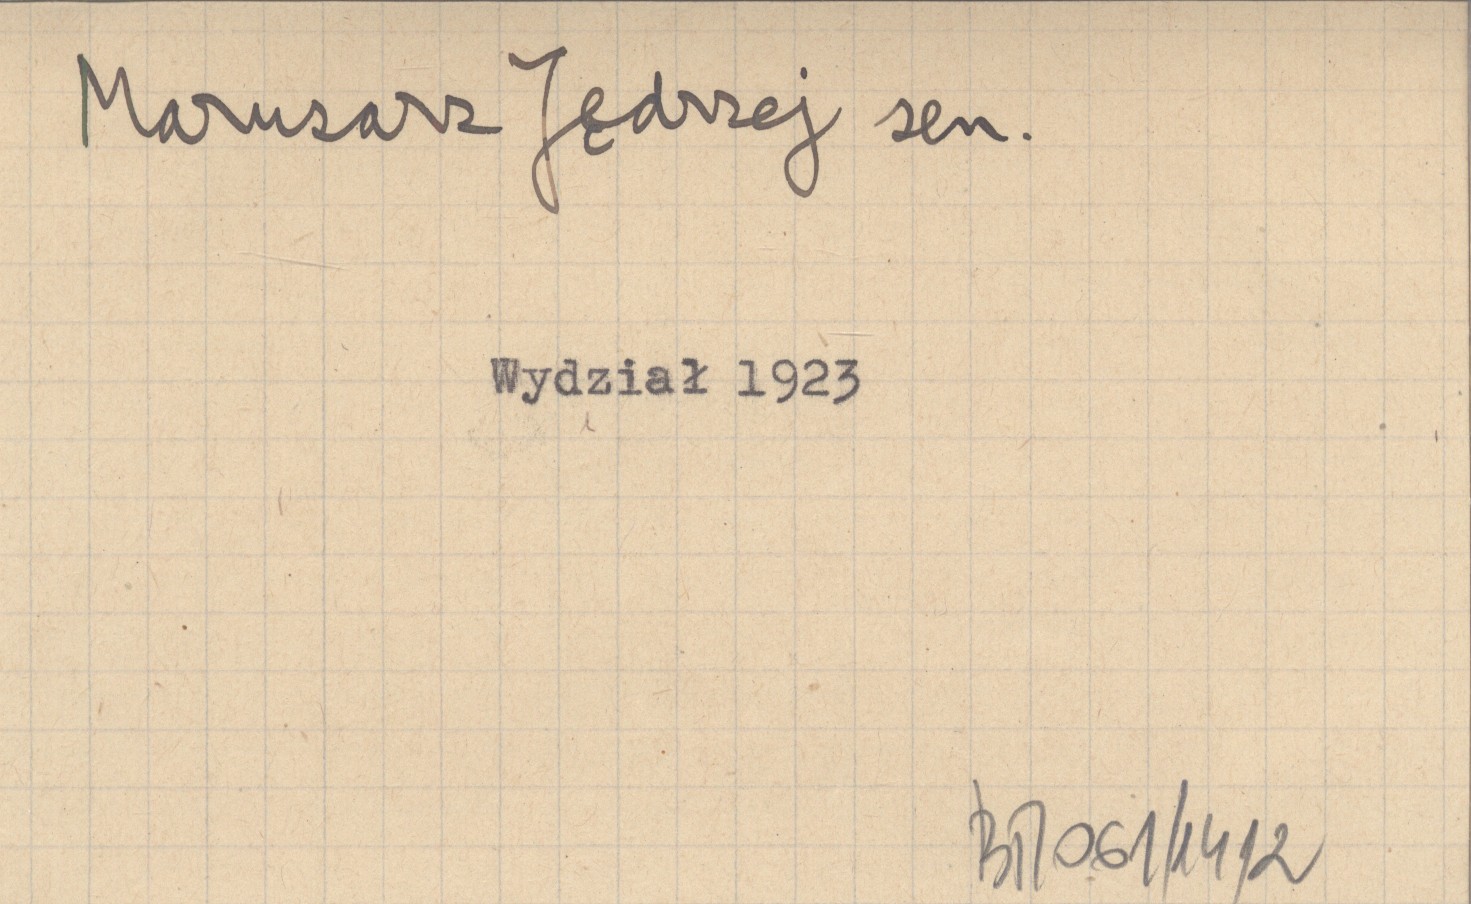 Marusarz Jędrzej sen.
Wydział 1923
061/1412